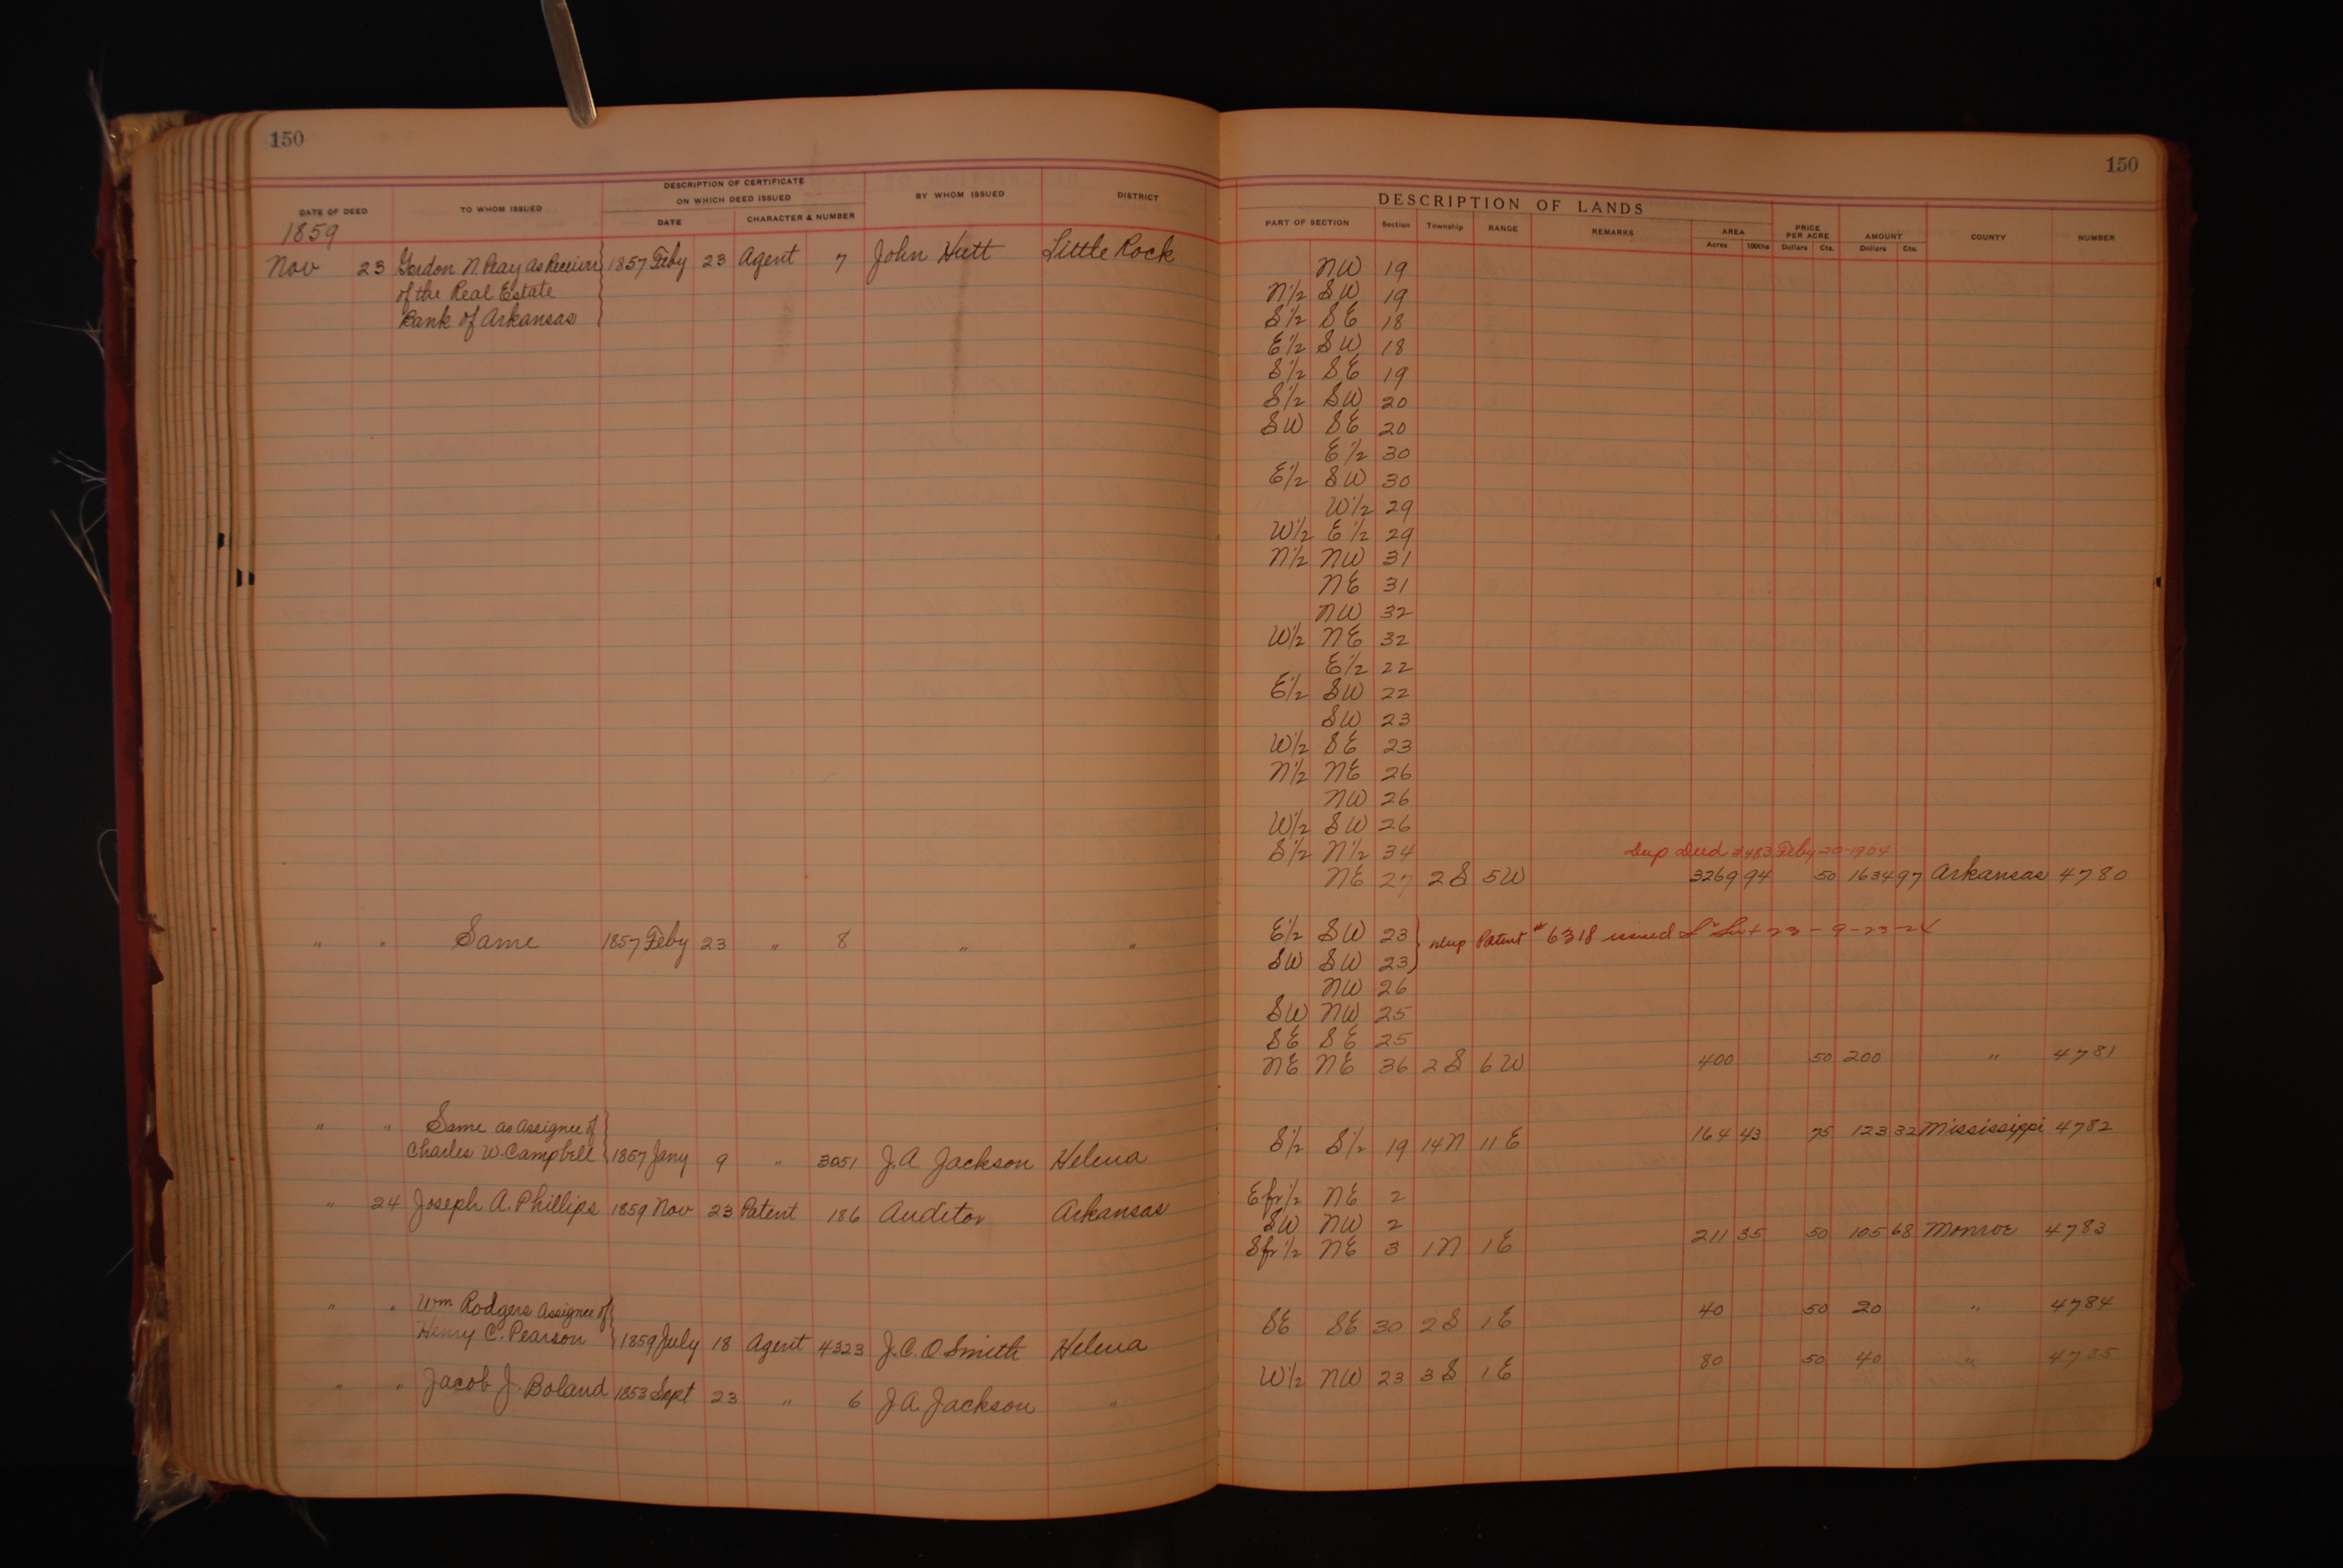 150
DESCRIPTION OF CERTIFICATE
ON WHICH DEED ISSUED
DATE OF DEED TO WHOM ISSUED DATE CHARACTER & NUMBER BY WHOM ISSUED DISTRICT
1859
Nov 23 Gordon N. Peay as Receiver 1857 Feby 23 Agent 7 John Hutt Little Rock
of the Real Estate
Bank of Arkansas
" " Same 1857 Feby 23 " 8 " "
" " Same as Assignee of
Charles W. Campbell 1857 Jany 9 " 3051 J. A. Jackson Helena
" 24 Joseph A. Phillips 1859 Nov 23 Patent 186 Auditor Arkansas
" " Wm Rodgers Assignee of
Henry C. Pearson 1859 July 18 Agent 4323 J. C. O Smith Helena
" " Jacob J. Boland 1853 Sept 23 " 6 J. A. Jackson "
150
DESCRIPTION OF LANDS
PART OF SECTION Section Township RANGE REMARKS AREA PRICE PER ACRE AMOUNT COUNTY NUMBER
Acres 100ths Dollars Cts. Dollars Cts.
NW 19
N½ SW 19
S½ SE 18
E½ SW 18
S½ SE 19
S½ SW 20
SW SE 20
E½ 30
E½ SW 30
W½ 29
W½ E½ 29
N½ NW 31
NE 31
NW 32
W½ NE 32
E½ 22
E½ SW 22
SW 23
W½ SE 23
N½ NE 26
NW 26
W½ SW 26
S½ N½ 34 Dup Deed #483 Feby 20-1904
NE 27 2S 5W 3269 94 50 1634 97 Arkansas 4780
E½ SW 23 Dup Patent # 6318 issued 23 - 9-23-24
SW SW 23
NW 26
SW NW 25
SE SE 25
NE NE 36 2S 6W 400 50 200 " 4781
S½ S½ 19 14N 11E 164 43 75 123 32 Mississippi 4782
E fr ½ NE 2
SW NW 2
S fr ½ NE 3 1N 1E 211 35 50 105 68 Monroe 4783
SE SE 30 2S 1E 40 50 20 " 4784
W½ NW 23 3S 1E 80 50 40 " 4785